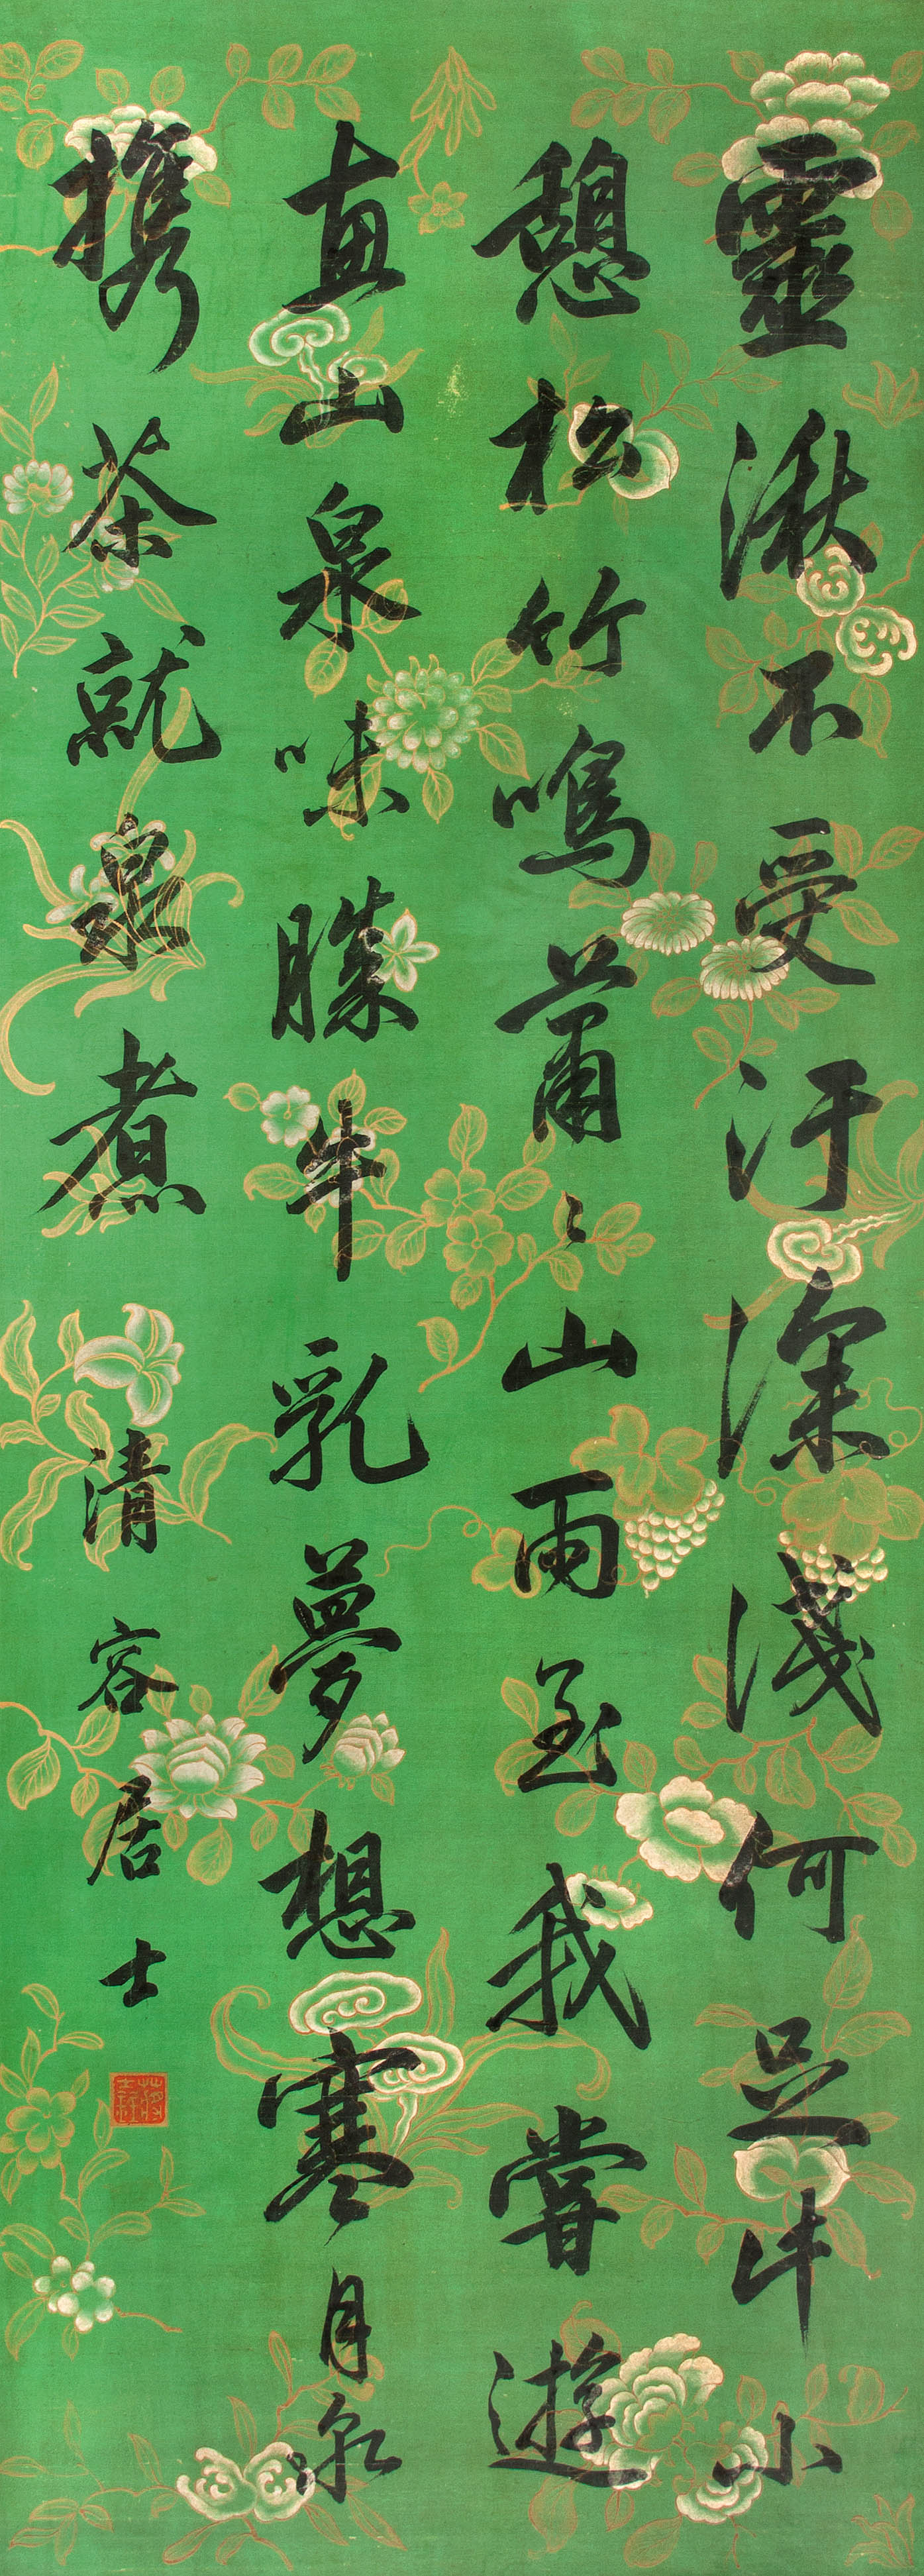 靈湫不受汙深淺何足計小
憩松竹鳴蕭〻山雨至我嘗遊
惠山泉味勝牛乳夢想寒月泉
携茶就泉煮 清容居士
蔣士銓